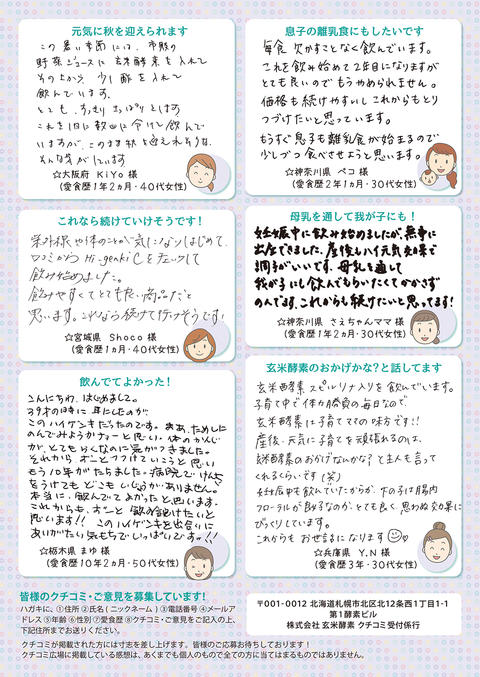 元気に秋を迎えられます
この暑い季節には、市販の
野菜ジュースに玄米酵素を入れて
そのとから 少し酢を入れて
飲んでいます。
とても、すっきり さっぱりとします
これを1日に数回に分けて飲んで
いますが、このまま秋も迎えれそうな、
そんな気がしています
☆大阪府 KiYo 様
(愛食歴1年2カ月・40代女性)
これなら続けていけそうです!
紫外線や体のことが気になりはじめて、
口コミから Hi・genki Cをチェックして
飲み始めました。
飲みやすくてとても良い商品だと
思います。これなら続けて行けそうです!
☆宮城県 Shoco 様
(愛食歴1カ月・40代女性)
飲んでてよかった!
こんにちわ、はじめまして。
39才の時に耳にしたのが
このハイゲンキだったのです。まあ、ためしに
のんでみようかなーと思い、体のかんじ
が、とても、いくなのに気がつきました。
それから ずーとつづけていこうと思い
もう10年がたちました。病院でけんさ
をうけてもどこもいじょうがありません。
本当に、飲んでてよかったと、思います。
これからも、ずーと 飲み続けたいと
思います!! このハイゲンキを出合いに
ありがたい気もちでいっぱいです。!!
☆栃木県 まゆ 様
(愛食歴10年2カ月・50代女性)
息子の離乳食にもしたいです
毎食 欠かすことなく飲んでいます。
これを飲み始めて2年目になりますが
とても良いのでもうやめられません。
価格も続けやすいしこれからもとり
つづけたいと思っています。
もうすぐ息子も離乳食が始まるので
少しづつ食べさせようと思います。
☆神奈川県 ペコ 様
(愛食歴2年1カ月・30代女性)
母乳を通して我が子にも!
妊娠中に飲み始めましたが、無事に
出産できました。産後もハイ元気効果で
調子がいいです。母乳を通して
我が子にも飲んでもらいたくてかかさず
のんでます。これからも続けたいと思ってます!
☆神奈川県 さえちゃんママ 様
(愛食歴1年2カ月・30代女性)
玄米酵素のおかげかな?と話してます
玄米酵素スピルリナ入りを飲んでいます。
子育て中で体力勝負の毎日なので、
玄米酵素は子育てママの味方です!!
産後、元気に子育てを頑張れるのは、
玄米酵素のおかげなんかな?と主人も言って
くれるくらいです(笑)
妊娠中も飲んでいたからか、下の子は腸内
フローラルが良好なのか、とても良く、思わぬ効果に
びっくりしています。
これからも お世話になります
☆兵庫県 Y.N 様
(愛食歴3年・30代女性)
皆様のクチコミ・ご意見を募集しています!
ハガキに、①住所 ②氏名(ニックネーム) ③電話番号 ④メールア
ドレス ⑤年齢 ⑥性別 ⑦愛食歴 ⑧クチコミ・ご意見をご記入の上、
下記住所までお送りください。
〒001-0012 北海道札幌市北区北12条西1丁目1-1
第1酵素ビル
株式会社 玄米酵素 クチコミ受付係行
クチコミが掲載された方には寸志を差し上げます。皆様のご応募お待ちしております!
クチコミ広場に掲載している感想は、あくまでも個人のもので全ての方に当てはまるものではありません。